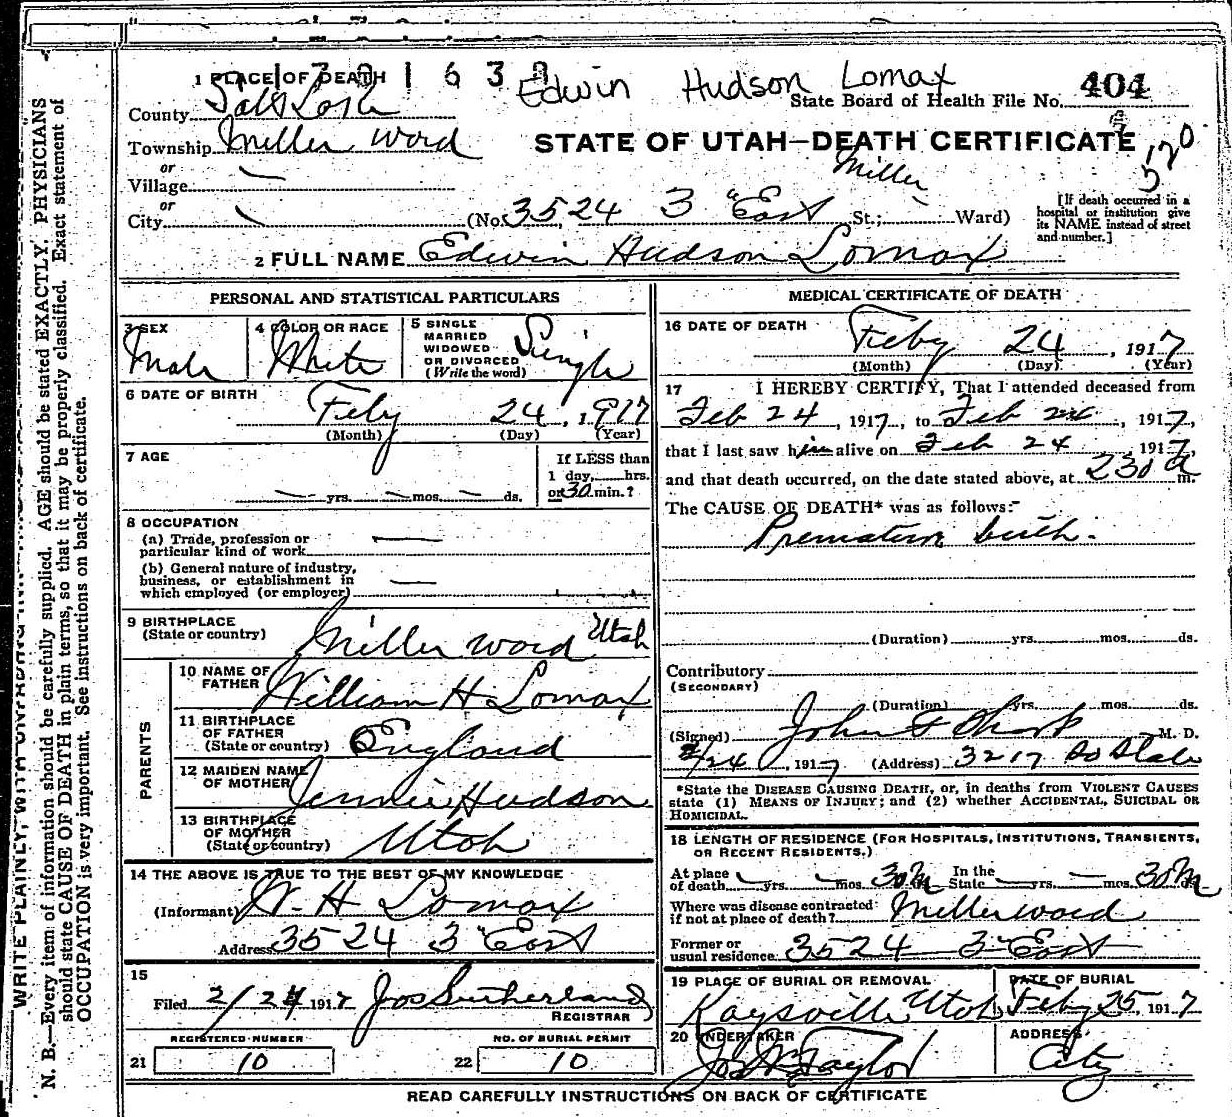 1 PLACE OF DEATH
Edwin Hudson Lomax
State Board of Health File No. 404
County Salt Lake
Township Miller Ward
STATE OF UTAH—DEATH CERTIFICATE
or
Village —
or
City —
Miller
(No. 3524 3" East St.; Ward)
[If death occurred in a hospital or institution give its NAME instead of street and number.]
2 FULL NAME Edwin Hudson Lomax
PERSONAL AND STATISTICAL PARTICULARS
3 SEX
Male
4 COLOR OR RACE
White
5 SINGLE MARRIED WIDOWED OR DIVORCED (Write the word)
Single
6 DATE OF BIRTH
Feby 24, 1917
(Month) (Day) (Year)
7 AGE
— yrs. — mos. — ds.
If LESS than
1 day, hrs.
or 30 min.?
8 OCCUPATION
(a) Trade, profession or
particular kind of work —
(b) General nature of industry,
business, or establishment in —
which employed (or employer)
9 BIRTHPLACE
(State or country) Miller Ward Utah
PARENTS
10 NAME OF FATHER William H Lomax
11 BIRTHPLACE OF FATHER (State or country) England
12 MAIDEN NAME OF MOTHER Jennie Hudson
13 BIRTHPLACE OF MOTHER (State or country) Utah
14 THE ABOVE IS TRUE TO THE BEST OF MY KNOWLEDGE
(Informant) W. H Lomax
Address 3524 3" East
15
Filed 2/24 1917 Jos Sutherland
REGISTRAR
REGISTERED NUMBER
21 10
NO. OF BURIAL PERMIT
22 10
MEDICAL CERTIFICATE OF DEATH
16 DATE OF DEATH
Feby 24, 1917
(Month) (Day) (Year)
17 I HEREBY CERTIFY, That I attended deceased from
Feb 24, 1917, to Feb 24, 1917,
that I last saw him alive on Feb 24, 1917,
and that death occurred, on the date stated above, at 230 a m.
The CAUSE OF DEATH* was as follows:
Premature birth.
(Duration) yrs. mos. ds.
Contributory
(SECONDARY)
(Duration) yrs. mos. ds.
(Signed) John F Sharp M. D.
2/24, 1917 (Address) 3217 So State
*State the DISEASE CAUSING DEATH, or, in deaths from VIOLENT CAUSES
state (1) MEANS OF INJURY; and (2) whether ACCIDENTAL, SUICIDAL OR
HOMICIDAL.
18 LENGTH OF RESIDENCE (FOR HOSPITALS, INSTITUTIONS, TRANSIENTS,
OR RECENT RESIDENTS.)
At place of death — yrs. — mos. 30 M In the State — yrs. — mos. 30 M
Where was disease contracted
if not at place of death? Miller ward
Former or
usual residence 3524 3" East
19 PLACE OF BURIAL OR REMOVAL
Kaysville Utah
DATE OF BURIAL
Feby 25, 1917
20 UNDERTAKER
Jos Wm Taylor
ADDRESS
City
READ CAREFULLY INSTRUCTIONS ON BACK OF CERTIFICATE
N. B.—Every item of information should be carefully supplied. AGE should be stated EXACTLY. PHYSICIANS
should state CAUSE OF DEATH in plain terms, so that it may be properly classified. Exact statement of
OCCUPATION is very important. See instructions on back of certificate.